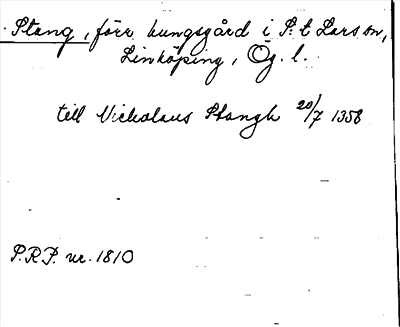 Stang, förr kungsgård i S:t Lars sn,
Linköping, Ög. l.
till Nicholaus Stangh 20/7 1358
P.R.P. nr. 1810